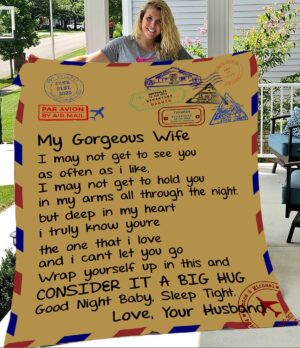 PAR AVION
BY AIR MAIL
My Gorgeous Wife
I may not get to see you
as often as i like,
I may not get to hold you
in my arms all through the night.
but deep in my heart
i truly know you're
the one that i love
and i can't let you go
Wrap yourself up in this and
CONSIDER IT A BIG HUG
Good Night Baby, Sleep Tight.
Love, Your Husband